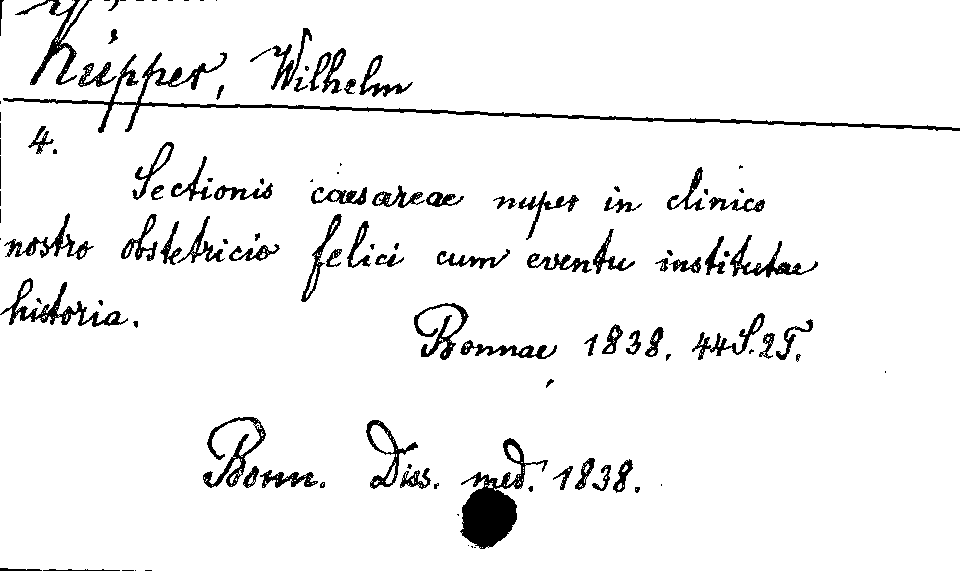 Küpper, Wilhelm
4.
Sectionis caesareae nuper in clinico
nostro obstetricio felici cum eventu institutae
historia.
Bonnae 1838. 44 S. 2 T.
Bonn. Diss. med. 1838.